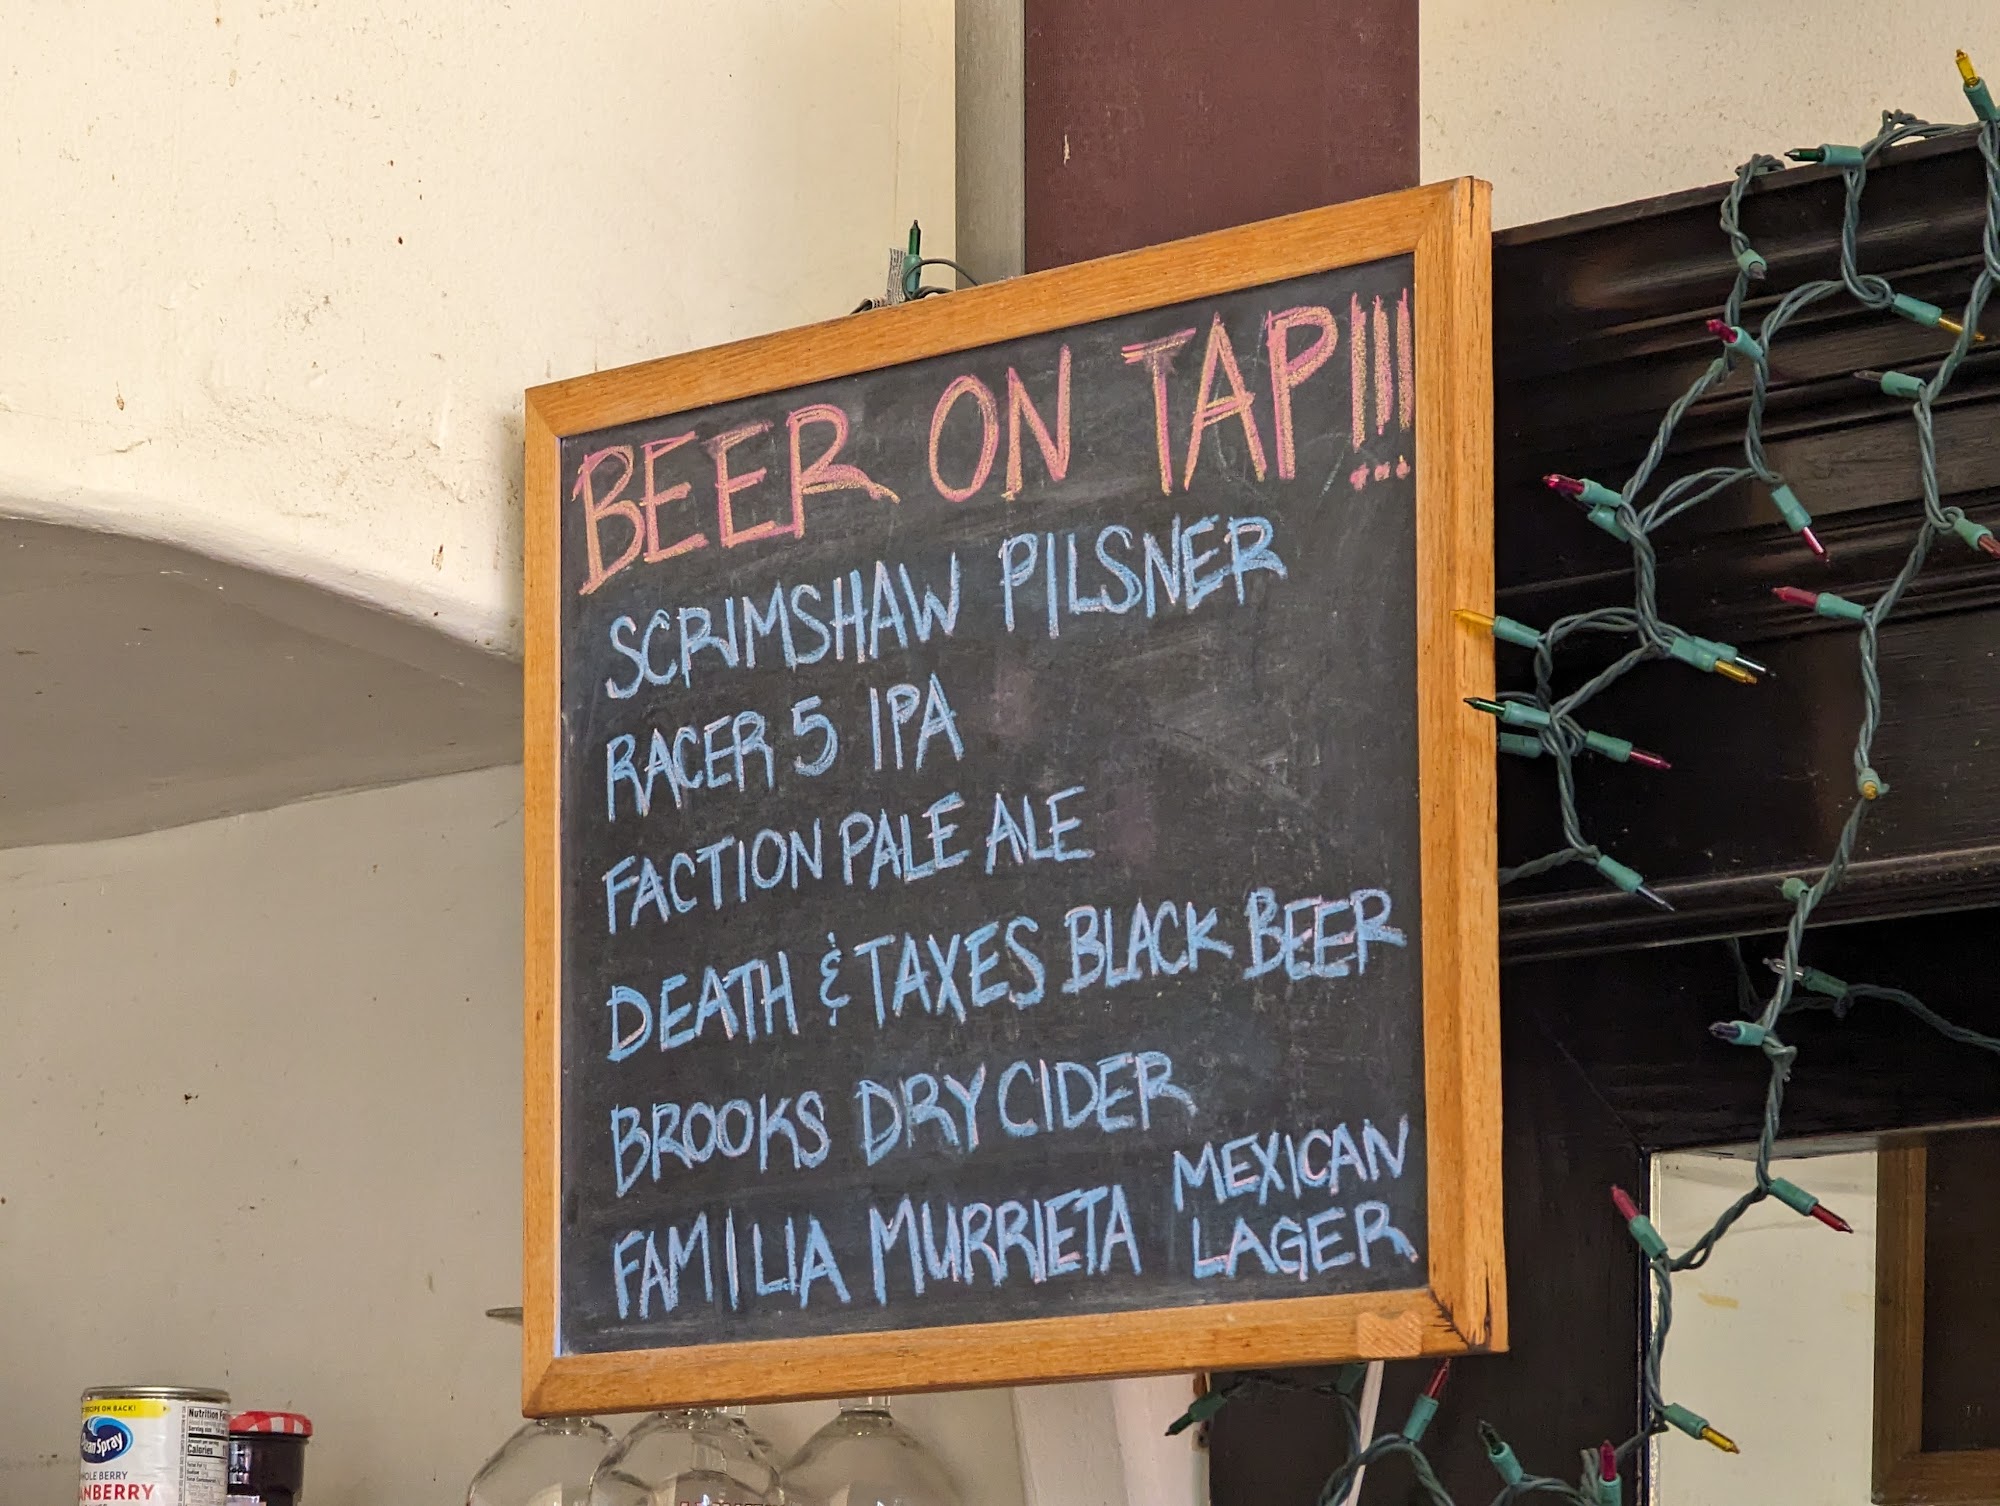 BEER ON TAP!!!
SCRIMSHAW PILSNER
RACER 5 IPA
FACTION PALE ALE
DEATH & TAXES BLACK BEER
BROOKS DRY CIDER
FAMILIA MURRIETA MEXICAN
LAGER
RECIPE ON BACK!
Ocean Spray
WHOLE BERRY
CRANBERRY
Nutrition
Calories